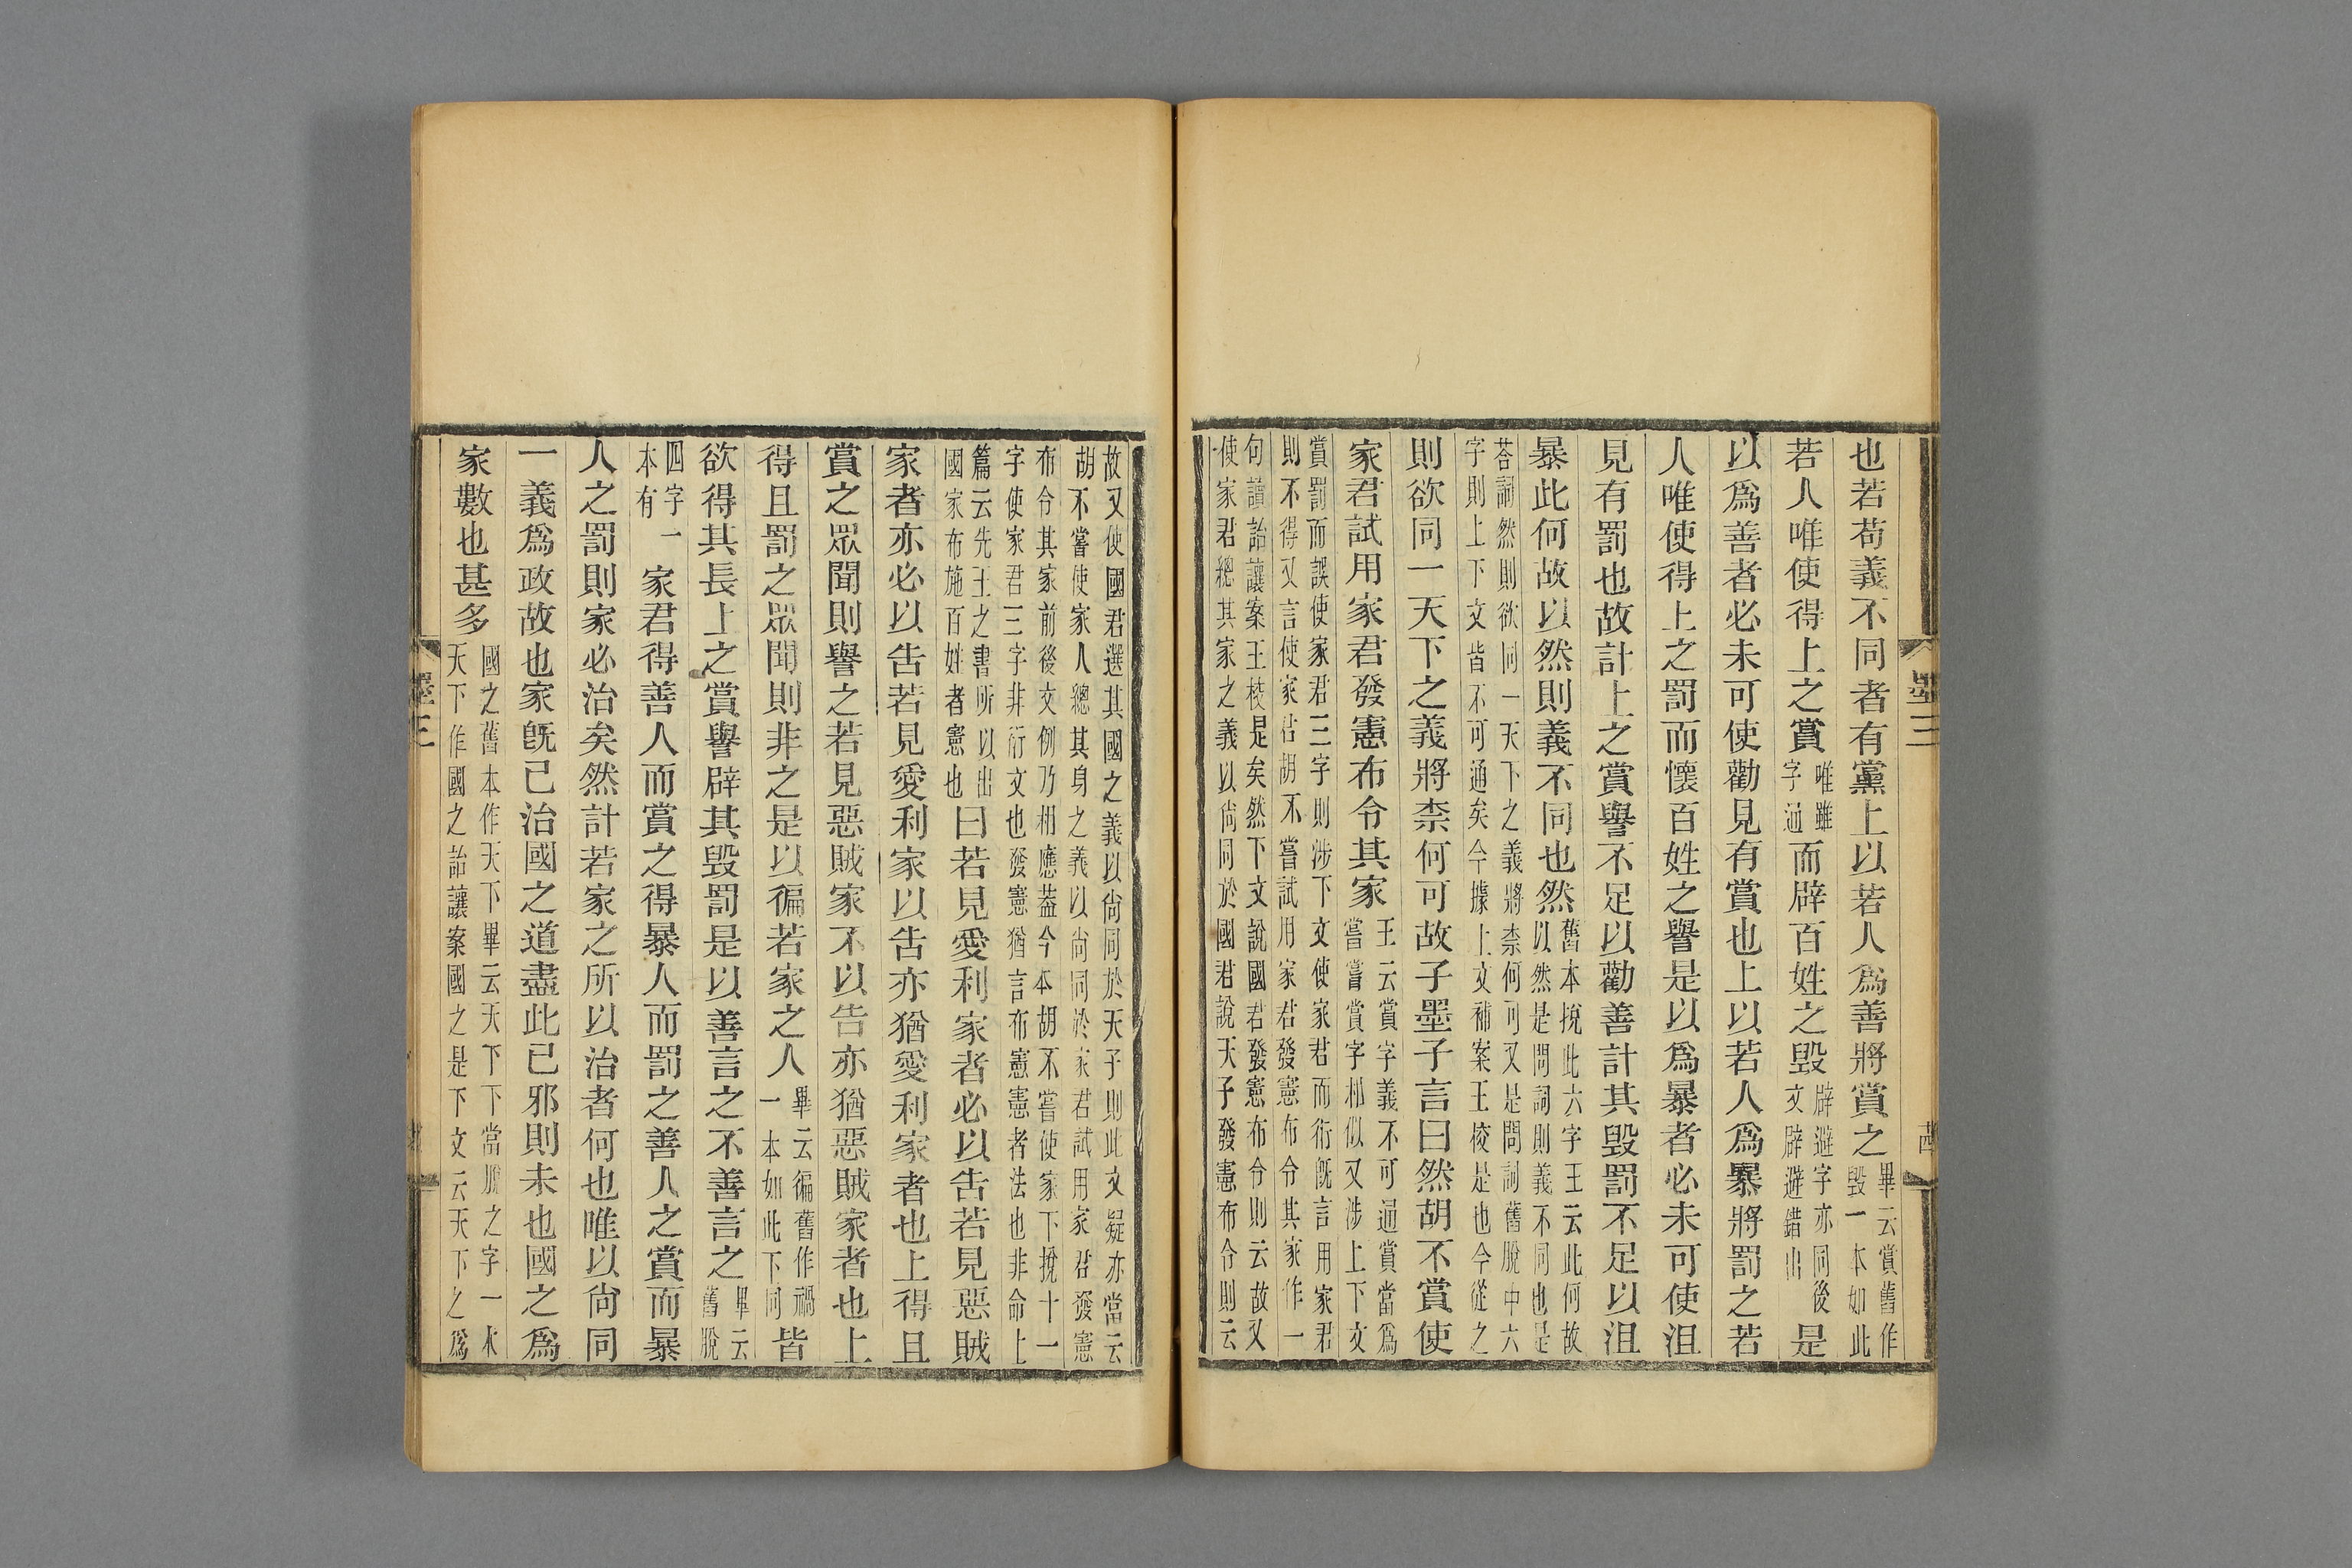 也若苟義不同者有黨上以若人爲善將賞之畢云賞舊作毀一本如此
若人唯使得上之賞唯雖字通而辟百姓之毀辟避字亦同後文辟避錯出是
以爲善者必未可使勸見有賞也上以若人爲暴將罰之若
人唯使得上之罰而懷百姓之譽是以爲暴者必未可使沮
見有罰也故計上之賞譽不足以勸善計其毀罰不足以沮
暴此何故以然則義不同也然舊本挩此六字王云此何故以然是問詞則義不同也是
荅詞然則欲同一天下之義將柰何可又是問詞舊脫中六字則上下文皆不可通矣今據上文補案王校是也今從之
則欲同一天下之義將柰何可故子墨子言曰然胡不賞使
家君試用家君發憲布令其家王云賞字義不可通賞當爲嘗嘗賞字相似又涉上下文
賞罰而誤使家君三字則涉下文使家君而衍旣言用家君則不得又言使家君胡不嘗試用家君發憲布令其家作一
句讀詒讓案王校是矣然下文說國君發憲布令則云故又使家君總其家之義以尙同於國君說天子發憲布令則云
故又使國君選其國之義以尙同於天子則此文疑亦當云胡不嘗使家人總其身之義以尙同於家君試用家君發憲
布令其家前後文例乃相應蓋今本胡不嘗使家下挩十一字使家君三字非衍文也發憲猶言布憲憲者法也非命上
篇云先王之書所以出國家布施百姓者憲也曰若見愛利家者必以告若見惡賊
家者亦必以告若見愛利家以告亦猶愛利家者也上得且
賞之眾聞則譽之若見惡賊家不以告亦猶惡賊家者也上
得且罰之眾聞則非之是以徧若家之人畢云徧舊作禍一本如此下同皆
欲得其長上之賞譽辟其毀罰是以善言之不善言之畢云舊脫
四字一本有家君得善人而賞之得暴人而罰之善人之賞而暴
人之罰則家必治矣然計若家之所以治者何也唯以尙同
一義爲政故也家旣已治國之道盡此已邪則未也國之爲
家數也甚多國之舊本作天下畢云天下下當脫之字一本天下作國之詒讓案國之是下文云天下之爲
墨三